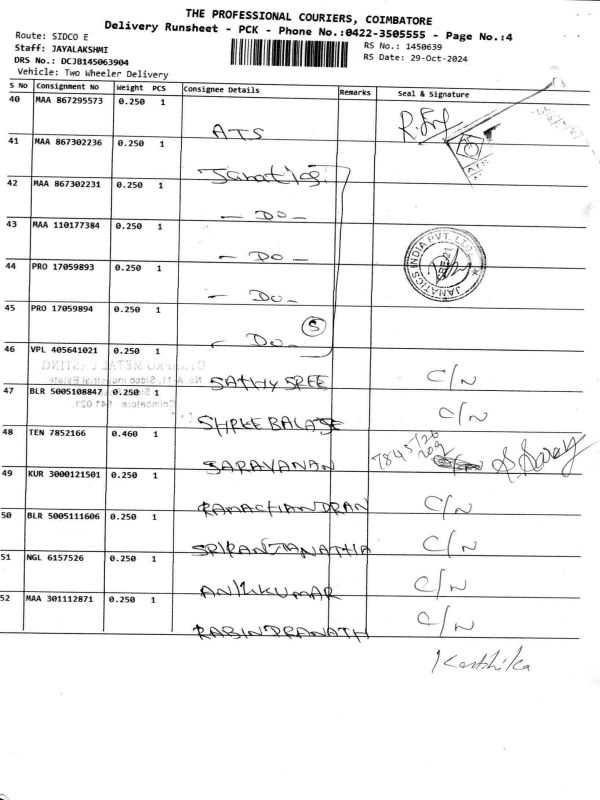 THE PROFESSIONAL COURIERS, COIMBATORE
Delivery Runsheet - PCK - Phone No.:0422-3505555 - Page No.:4
Route: SIDCO E
Staff: JAYALAKSHMI
RS No.: 1450639
DRS No.: DCJB145063904
RS Date: 29-Oct-2024
Vehicle: Two Wheeler Delivery
S No Consignment No Weight PCS Consignee Details Remarks Seal & Signature
40 MAA 867295573 0.250 1
ATS
41 MAA 867302236 0.250 1
42 MAA 867302231 0.250 1
- DO -
43 MAA 110177384 0.250 1
JANATICS INDIA PVT. LTD.
- DO -
44 PRO 17059893 0.250 1
- DO -
45 PRO 17059894 0.250 1
5
- DO -
46 VPL 405641021 0.250 1
SATHY SREE C/N
47 BLR 5005108847 0.250 1
SHREE BALAJE C/N
48 TEN 7852166 0.460 1
SARAVANAN
49 KUR 3000121501 0.250 1
RAMACHANDRAN C/N
50 BLR 5005111606 0.250 1
SRIRANJANATHA C/N
51 NGL 6157526 0.250 1
ANILKUMAR C/N
52 MAA 301112871 0.250 1
RABINDRANATH C/N
Karthika